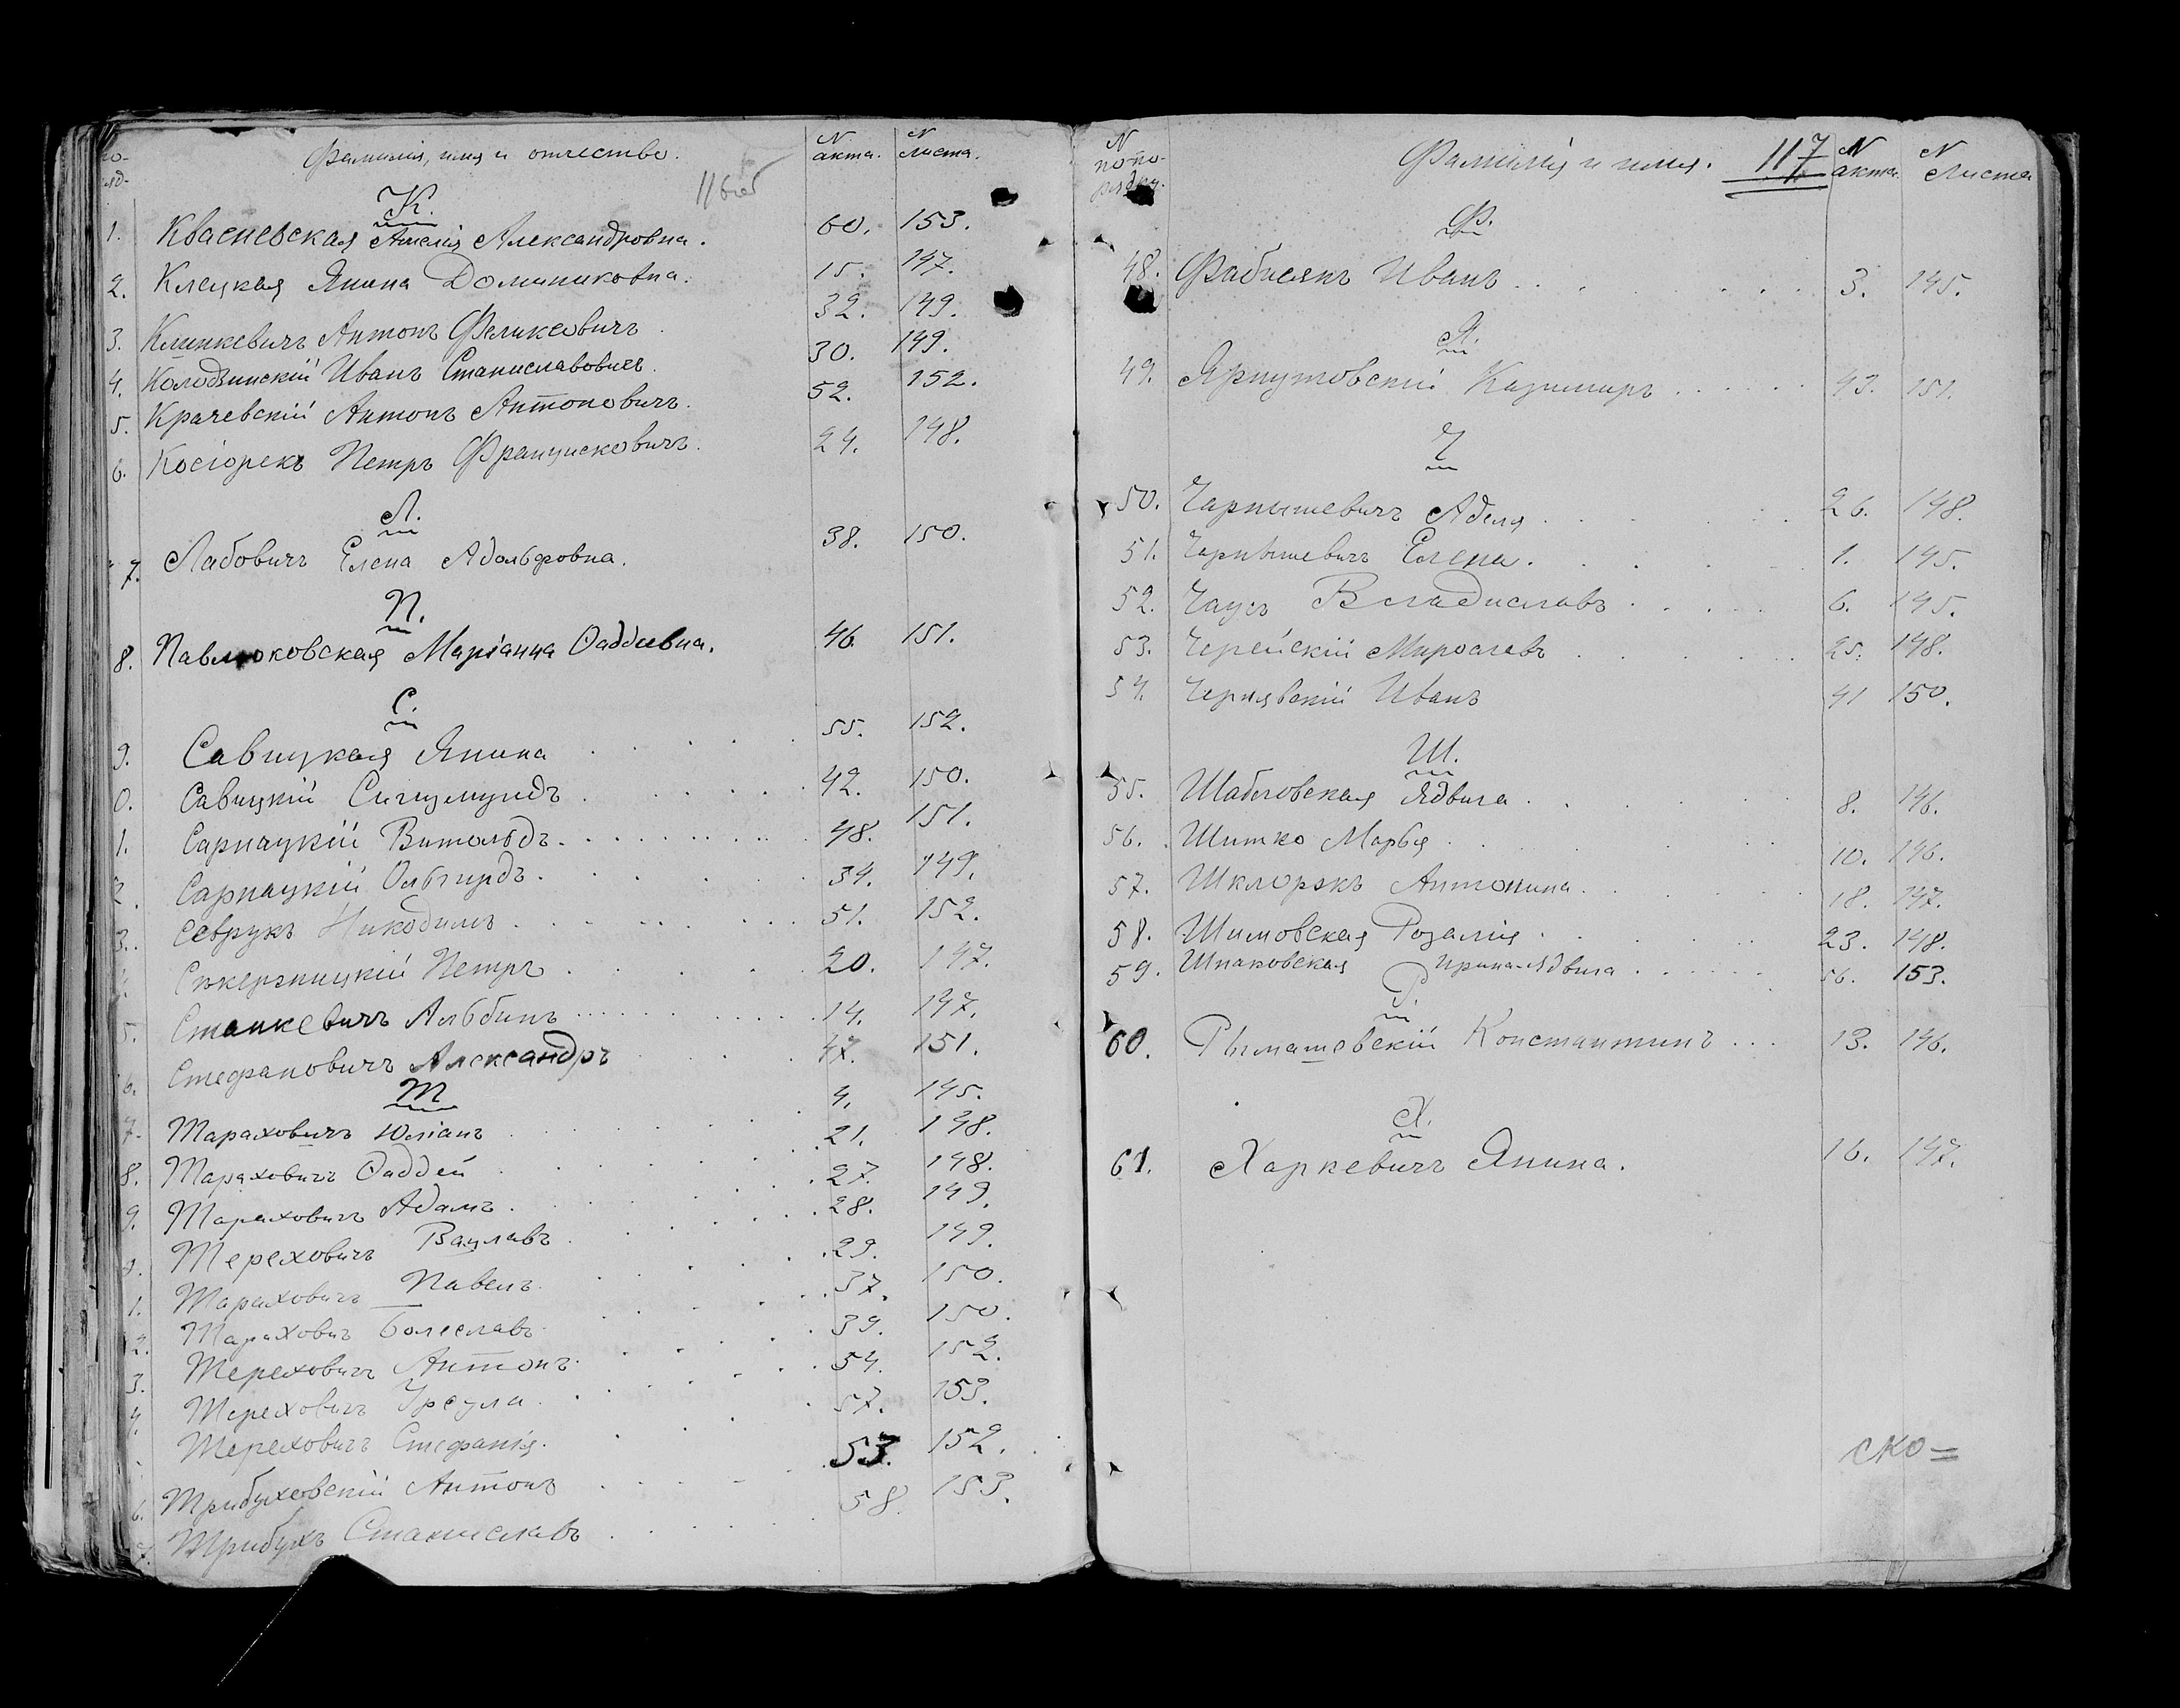 Фамилія, имя и отчество. N акта. N Листа.
К.
1. Квасневская Амелія Александровна. 60. 153.
2. Клецкая Янина Доминиковна. 15. 147.
3. Климкевичъ Антонъ Феликсовичъ. 32. 149.
4. Колодзинскій Иванъ Станиславовичъ. 30. 149.
5. Крачевскій Антонъ Антоновичъ. 52. 152.
6. Косіорекъ Петръ Францисковичъ. 24. 148.
Л.
7. Лабовичъ Елена Адольфовна. 38. 150.
П.
8. Павлюковская Маріанна Ѳаддѣевна. 46. 151.
С.
9. Савицкая Янина 55. 152.
0. Савицкій Сигизмундъ 42. 150.
1. Сарнацкій Витольдъ 48. 151.
2. Сарнацкій Ольгердъ 34. 149.
3. Севрукъ Никодимъ 51. 152.
Скержницкій Петръ 20. 147.
5. Станкевичъ Альбинъ 14. 147.
6. Стефановичъ Александръ 47. 151.
Т
7. Тараховичъ Юліанъ 4. 145.
8. Тараховичъ Ѳаддей 21. 148.
9. Тараховичъ Адамъ 27. 148.
Тереховичъ Вацлавъ 28. 149.
1. Тараховичъ Павелъ 29. 149.
2. Тараховичъ Болеславъ 37. 150.
3. Тереховичъ Антонъ 39. 150.
4. Тереховичъ Урсула 54. 152.
Тереховичъ Стефанія 57. 153.
6. Трибуховскій Антонъ 53. 152.
7. Трибухъ Станиславъ 58. 153.
N по-по-рядку. Фамилія и имя. 117 N акта. N Листа
Ф.
48. Фабисякъ Иванъ 3. 145.
Я.
49. Ярнутовскій Казимиръ 43. 151.
Ч
50. Чарнышевичъ Аделя 26. 148.
51. Чарнышевичъ Елена 1. 145.
52. Чаусъ Владиславъ 6. 145.
53. Черейскій Мирославъ 25. 148.
54. Чернявскій Иванъ 41 150.
Ш.
55. Шабловская Ядвига 8. 146.
56. Шитко Марья 10. 146.
57. Шклорэкъ Антонина 18. 147.
58. Шимовская Розалия 23. 148.
59. Шпаковская Ирина-Ядвига 56. 153.
Р.
60. Рымашевскій Константинъ 13. 146.
Х.
61. Харкевичъ Янина. 16. 147.